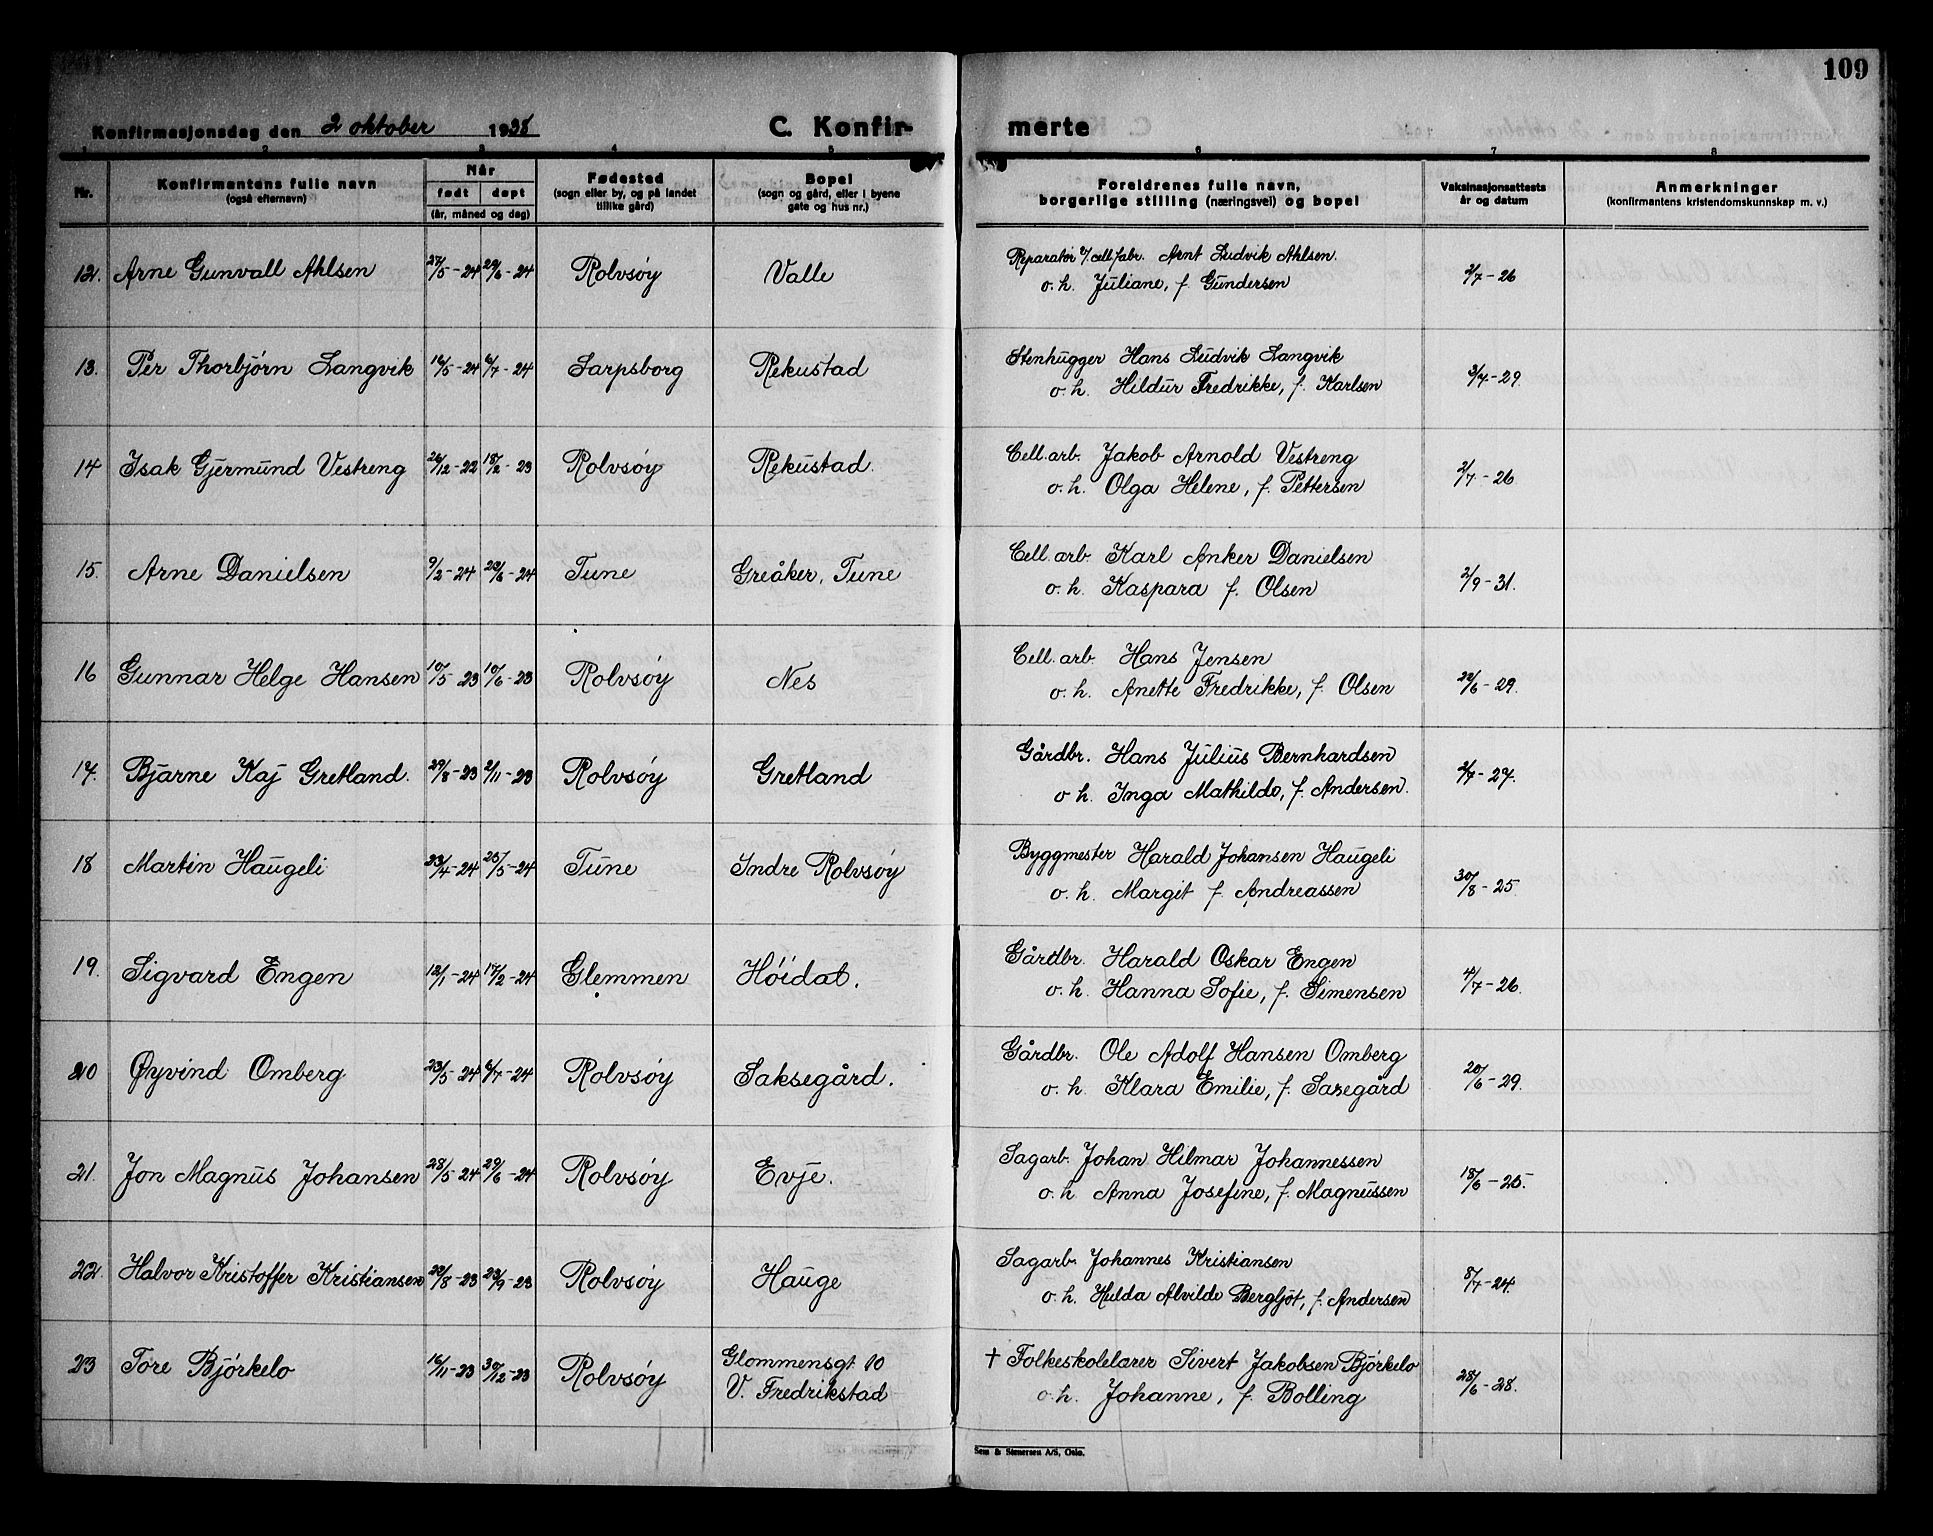 109
Konfirmasjonsdag den 2 oktober 1938 C. Konfir- merte
1 2 3 4 5 6 7 8
Nr. Konfirmantens fulle navn (også efternavn) Når født døpt (år, måned og dag) Fødested (sogn eller by, og på landet tillike gård) Bopel (sogn og gård, eller i byene gate og hus nr.) Foreldrenes fulle navn, borgerlige stilling (næringsvei) og bopel Vaksinasjonsattests år og datum Anmerkninger (konfirmantens kristendomskunnskap m. v.)
12. Arne Gunvall Ahlsen 27/5-24 29/6-24 Rolvsøy Valle Reparatør v/ cell.fabr. Arnt Ludvik Ahlsen. 2/7-26
o. h. Juliane, f. Gundersen
13. Per Thorbjørn Langvik 16/5-24 6/7-24 Sarpsborg Rekustad Stenhugger Hans Ludvik Langvik 3/7-29.
o. h. Hildur Fredrikke, f. Karlsen
14 Isak Gjermund Vestreng 26/12-22 18/2-23 Rolvsøy Rekustad. Cell. arb. Jakob Arnold Vestreng 2/7-26
o. h. Olga Helene, f. Pettersen
15. Arne Danielsen 9/2-24 29/6-24 Tune Greåker, Tune Cell. arb. Karl Anker Danielsen 2/9-31.
o. h. Kaspara f. Olsen
16 Gunnar Helge Hansen 10/5 23 10/6-23 Rolvsøy Nes Cell. arb. Hans Jensen 22/6-29.
o. h. Anette Fredrikke, f. Olsen
17. Bjarne Kaj Gretland. 29/8-23 2/11-23 Rolvsøy Gretland Gårdbr. Hans Julius Bernhardsen 2/7-27.
o h. Inga Mathilde, f. Andersen.
18 Martin Haugeli 23/4-24 25/5-24 Tune Indre Rolvsøy Byggmester Harald Johansen Haugeli 30/8-25
o. h. Margit f. Andreassen
19. Sigvard Engen 12/1-24 17/2-24 Glemmen Høidal. Gårdbr. Harald Oskar Engen 4/7-26.
o. h. Hanna Sofie, f. Simensen
20 Øyvind Omberg 23/5-24 6/7-24 Rolvsøy Saksegård. Gårdbr. Ole Adolf Hansen Omberg 20/6-29.
o. h. Klara Emilie, f. Saxegård
21. Jon Magnus Johansen 28/5-24 29/6-24 Rolvsøy Evje. Sagarb. Johan Hilmar Johannessen 18/6-25.
o. h Anna Josefine, f. Magnussen
22. Halvor Kristoffer Kristiansen 20/8-23 23/9-23 Rolvsøy Hauge Sagarb. Johannes Kristiansen 8/7-24.
o. h. Hulda Alvilde Bergljot, f. Andersen
23 Tore Bjørkelo 16/11-23 30/12-23 Rolvsøy Glommensgt. 10 † Folkeskolelærer Sivert Jakobsen Bjørkelo 28/6-28.
V. Fredrikstad o. h. Johanne, f. Bolling
Sem & Stenersen A/S, Oslo.